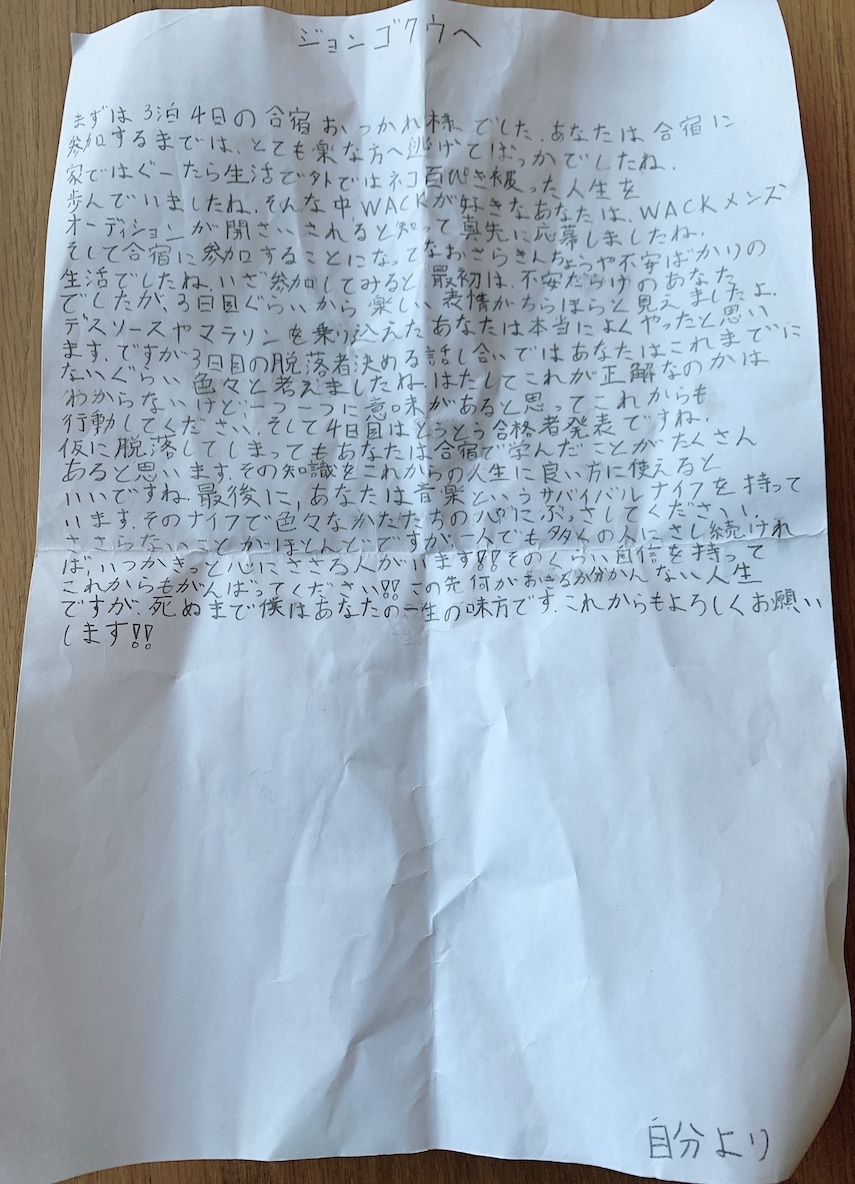 ジョンゴクウへ
まずは3泊4日の合宿おつかれ様でした。あなたは合宿に
参加するまでは、とても楽な方へ逃げてばっかでしたね。
家ではぐーたら生活で外ではネコ百ぴき被った人生を
歩んでいましたね。そんな中、WACKが好きなあなたは、WACKメンズ
オーディションが開さいされると知って真先に応募しましたね。
そして合宿に参加することになってなおさらきんちょうや不安ばかりの
生活でしたね。いざ参加してみると、最初は、不安だらけのあなた
でしたが、3日目ぐらいから楽しい表情がちらほらと見えましたよ。
デスソースやマラソンを乗り込えたあなたは本当によくやったと思い
ます。ですが3日目の脱落者決める話し合いではあなたはこれまでに
ないぐらい色々と考えましたね。はたしてこれが正解なのかは
わからないけど、一つ一つに意味があると思ってこれからも
行動してください。そして4日目はとうとう合格者発表ですね。
仮に脱落してしまってもあなたは合宿で学んだことがたくさん
あると思います。その知識をこれからの人生に良い方に使えると
いいですね。最後に、あなたは音楽というサバイバルナイフを持って
います。そのナイフで色々なかたたちの心にぶっさしてください。
ささらないことがほとんどですが一人でも多くの人にさし続けれ
ば、いつかきっと心にささる人がいます!!そのくらい自信を持って
これからもがんばってください!!この先何がおきるか分かんない人生
ですが、死ぬまで僕はあなたの一生の味方です。これからもよろしくお願い
します!!
自分より